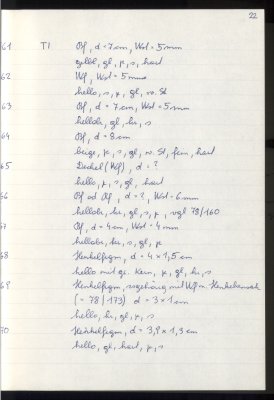 22
61 T1 Bf, d = 7 cm, Wst = 5 mm
gelbl, gl, k, s, hart
62 Wf, Wst = 5 mm
hello, s, k, gl, w. St
63 Bf, d = 7 cm, Wst = 5 mm
hellob, gl, kr, s
64 Bf, d = 8 cm
beige, k, s, gl, w. St, fein, hart
65 Deckel (Wf), d = ?
hello, k, s, gl, hart
66 Bf od Of, d = ?, Wst = 6 mm
hellobr, kr, gl, s, k, vgl 78/160
67 Bf, d = 4 cm, Wst = 4 mm
hellobr, kr, s, gl, k
68 Henkelfrgm, d = 4 x 1,5 cm
hello mit ge. Kern, k, gl, kr, s
69 Henkelfrgm, zugehörig mit Wf m. Henkelansatz
(= 78/173) d = 3 x 1 cm
hello, kr, gl, k, s
70 Henkelfrgm, d = 3,9 x 1,3 cm
hello, gl, hart, k, s